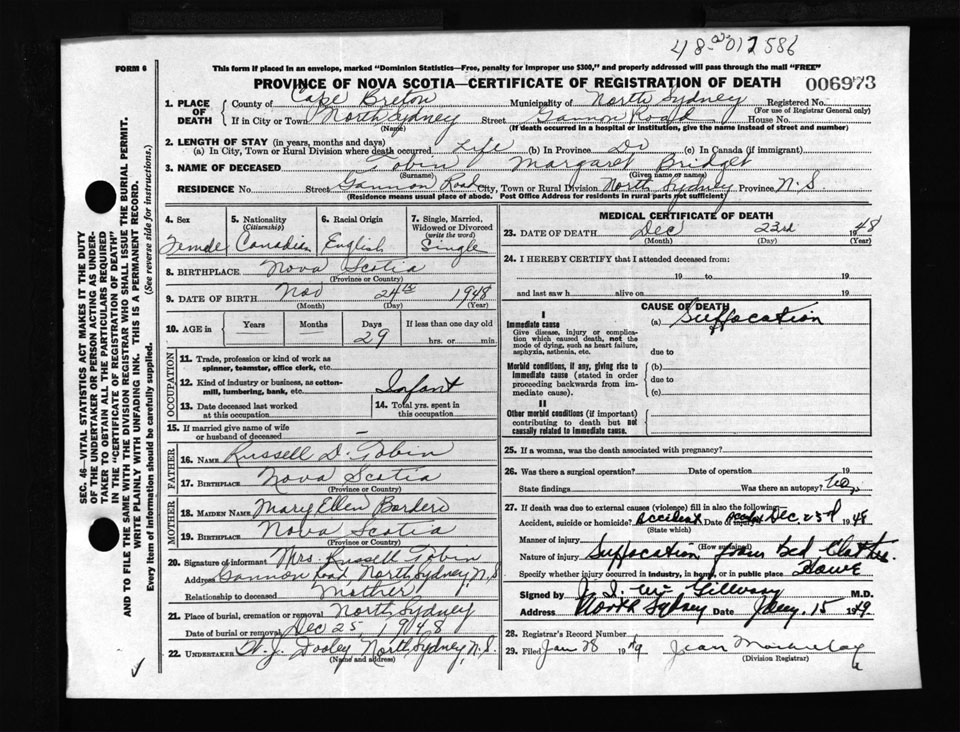 48 012586
FORM 6
This form if placed in an envelope, marked "Dominion Statistics—Free, penalty for improper use $300," and properly addressed will pass through the mail "FREE"
PROVINCE OF NOVA SCOTIA—CERTIFICATE OF REGISTRATION OF DEATH
006973
1. PLACE OF DEATH
County of Cape Breton Municipality of North Sydney Registered No.
(For use of Registrar General only)
If in City or Town North Sydney Street Gannon Road House No.
(Name) (If death occurred in a hospital or institution, give the name instead of street and number)
2. LENGTH OF STAY (in years, months and days)
(a) In City, Town or Rural Division where death occurred Life (b) In Province Do (c) In Canada (if immigrant)
3. NAME OF DECEASED Tobin Margaret Bridget
(Surname) (Given name or names)
RESIDENCE No. Street Gannon Road City, Town or Rural Division North Sydney Province N.S
(Residence means usual place of abode. Post Office Address for residents in rural parts not sufficient)
4. Sex Female
5. Nationality (Citizenship) Canadian
6. Racial Origin English
7. Single, Married, Widowed or Divorced (write the word) Single
8. BIRTHPLACE Nova Scotia
(Province or Country)
9. DATE OF BIRTH Nov 24th 1948
(Month) (Day) (Year)
10. AGE in Years Months Days If less than one day old
29 hrs. or min.
OCCUPATION
11. Trade, profession or kind of work as spinner, teamster, office clerk, etc.
12. Kind of industry or business, as cotton-mill, lumbering, bank, etc. Infant
13. Date deceased last worked at this occupation
14. Total yrs. spent in this occupation
15. If married give name of wife or husband of deceased –
FATHER
16. NAME Russell D. Tobin
17. BIRTHPLACE Nova Scotia
(Province or Country)
MOTHER
18. MAIDEN NAME Mary Ellen
19. BIRTHPLACE Nova Scotia
(Province or Country)
20. Signature of informant Mrs. Russell Tobin
Address Gannon Road, North Sydney, N.S
Relationship to deceased Mother
21. Place of burial, cremation or removal North Sydney
Date of burial or removal Dec 25, 1948
22. UNDERTAKER W.J. Dooley North Sydney, N.S.
(Name and address)
MEDICAL CERTIFICATE OF DEATH
23. DATE OF DEATH Dec 23rd 1948
(Month) (Day) (Year)
24. I HEREBY CERTIFY that I attended deceased from:
19 to 19
and last saw h alive on 19
CAUSE OF DEATH
I
Immediate cause
Give disease, injury or complication which caused death, not the mode of dying, such as heart failure, asphyxia, asthenia, etc.
(a) Suffocation
due to
Morbid conditions, if any, giving rise to immediate cause (stated in order proceeding backwards from immediate cause).
(b)
due to
(c)
II
Other morbid conditions (if important) contributing to death but not causally related to immediate cause.
25. If a woman, was the death associated with pregnancy?
26. Was there a surgical operation? Date of operation 19
State findings Was there an autopsy? No
27. If death was due to external causes (violence) fill in also the following:
Accident, suicide or homicide? Accident Date of Dec. 23rd 1948
(State which)
Manner of injury
(How sustained)
Nature of injury Suffocation from bed Clothes.
Specify whether injury occurred in industry, in home, or in public place Home
Signed by M.D.
Address North Sydney Date Jany. 15 1949
28. Registrar's Record Number
29. Filed Jan 28 1949 Jean
(Division Registrar)
SEC. 46—VITAL STATISTICS ACT MAKES IT THE DUTY
OF THE UNDERTAKER OR PERSON ACTING AS UNDER-
TAKER TO OBTAIN ALL THE PARTICULARS REQUIRED
IN THE "CERTIFICATE OF REGISTRATION OF DEATH"
AND TO FILE THE SAME WITH THE DIVISION REGISTRAR WHO SHALL ISSUE THE BURIAL PERMIT.
WRITE PLAINLY WITH UNFADING INK. THIS IS A PERMANENT RECORD.
Every item of information should be carefully supplied. (See reverse side for instructions.)